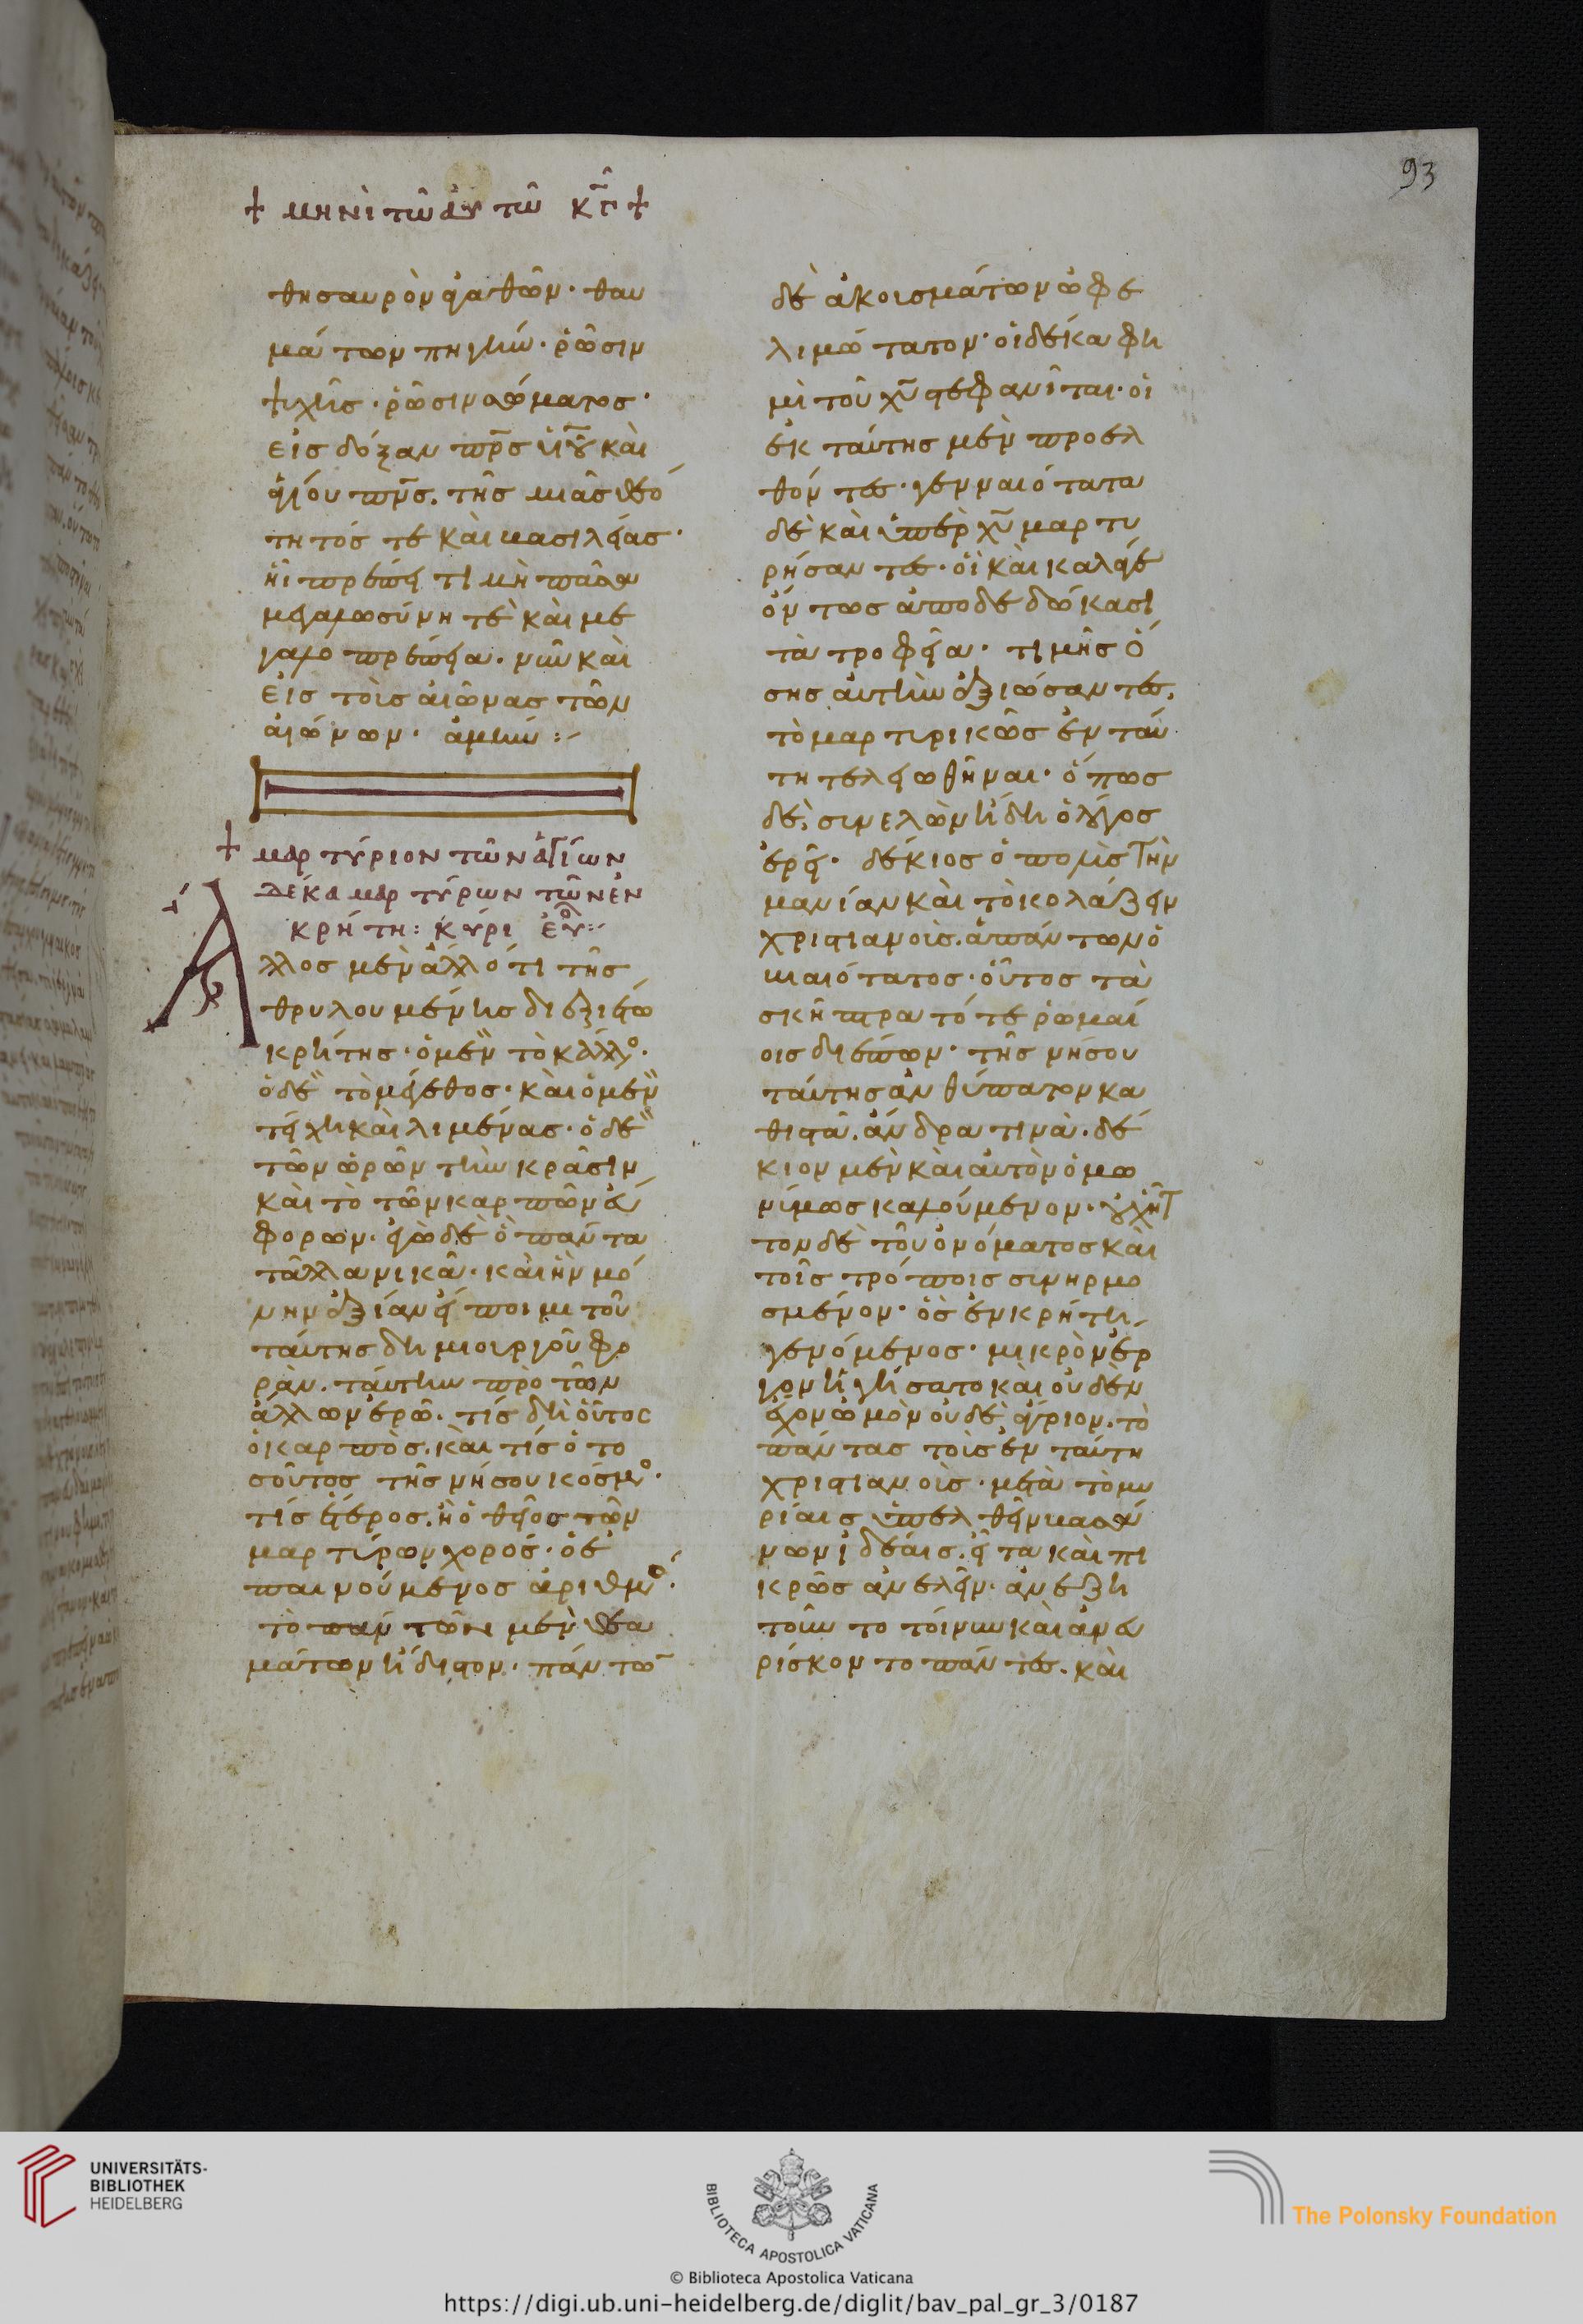 93
+ μηνὶ τῶ αὐτῶ κγ +
θησαυρὸν ἀγαθῶν· θαυ
μάτων πηγήν· ῥῶσιν
ψυχῆς· ῥῶσιν σώματος·
εἰς δόξαν πρς υἱοῦ καὶ
ἁγίου πνς. τῆς μιᾶς θεό
τητός τε καὶ βασιλείας·
ἧι πρέπει τιμὴ πᾶσα
μεγαλωσύνη τὲ καὶ με
γαλοπρέπεια. νῦν καὶ
εἰς τοὺς αἰῶνας τῶν
αἰώνων· ἀμήν:-
+ μαρτύριον τῶν ἁγίων
δέκα μαρτύρων τῶν ἐν
κρήτη: κύρι εὐλ:-
Ἄλλος μὲν ἄλλό τι τῆς
θρυλουμένης διεξιέτω
κρήτης· ὁ μὲν τὸ κάλλο·
ὁ δὲ τὸ μέγεθος· καὶ ὁ μὲν
τείχη καὶ λιμένας· ὁ δὲ
τῶν ὡρῶν τὴν κρᾶσιν
καὶ τὸ τῶν καρπῶν εὔ
φορων· ἐγὼ δὲ ὃ πάντα
τἄλλα νικᾶ· καὶ ἣν μό
νην ἀξίαν εἴποιμι τοῦ
ταύτης δημιουργοῦ φο
ρὰν. ταύτην πρὸ τῶν
ἄλλων ἐρῶ. τίς δὴ οὗτος
ὁ καρπὸς. καὶ τίς ὁ το
σοῦτος τῆς νήσου κόσμο·
τίς ἕτερος. ἢ ὁ θεῖος τῶν
μαρτύρων χορός· ὁ ἐ
παινούμενος ἀριθμο·
τὸ πάντων μὲν θεα
μάτων ἥδιστον· πάντω
δὲ ἀκουσμάτων ὠφε
λιμώτατον· οἱ δέκα φη
μὶ τοῦ χυ στεφανῖται· οἱ
ἐκ ταύτης μὲν προελ
θόντες· γενναιότατα
δὲ καὶ ὑπὲρ χυ μαρτυ
ρήσαντες· οἳ καὶ καλά γε
ὄντως ἀποδεδώκασι
τὰ τροφεῖα· τιμῆς ὅ
σης αὐτὴν ἀξιώσαντες,
τὸ μαρτυρικῶς ἐν ταύ
τη τελειωθῆναι· ὅπως
δὲ, συνελὼν ἤδη ὁ λόγος
ἐρεῖ· δέκιος ὁ πολὺς τὴν
μανίαν καὶ τὸ κολάζειν
χριστιανοὺς. ἁπάντων ὁ
βιαιότατος· οὗτος τὰ
σκῆπτρα τότε ῥωμαί
οις διέπων· τῆς νήσου
ταύτης ἀνθύπατον κα
θιστᾶ. ἄνδρα τινὰ. δέ
κιον μὲν καὶ αὐτὸν ὁμω
νύμως καλούμενον·
τον δὲ τοῦ ὀνόματος καὶ
τοῖς τρόποις συνηρμο
σμένον· ὃς ἐν κρήτη
γενόμενος· μικρὸν ἔρ
γον ἡγήσατο καὶ οὐδὲν
ἔχον ὠμὸν οὐδὲ ἄγριον. τὸ
πάντας τοὺς ἐν ταύτη
χριστιανοὺς· μετὰ τὸ μυ
ρίαις ὑπελθεῖν βασά
νων ἰδέαις. εἶτα καὶ πι
κρῶς ἀνελεῖν· ἀνεζη
τοῦντο τοίνυν καὶ ἀνευ
ρίσκοντο πάντες. καὶ
UNIVERSITÄTS-
BIBLIOTHEK
HEIDELBERG
BIBLIOTECA APOSTOLICA VATICANA
The Polonsky Foundation
© Biblioteca Apostolica Vaticana
https://digi.ub.uni-heidelberg.de/diglit/bav_pal_gr_3/0187